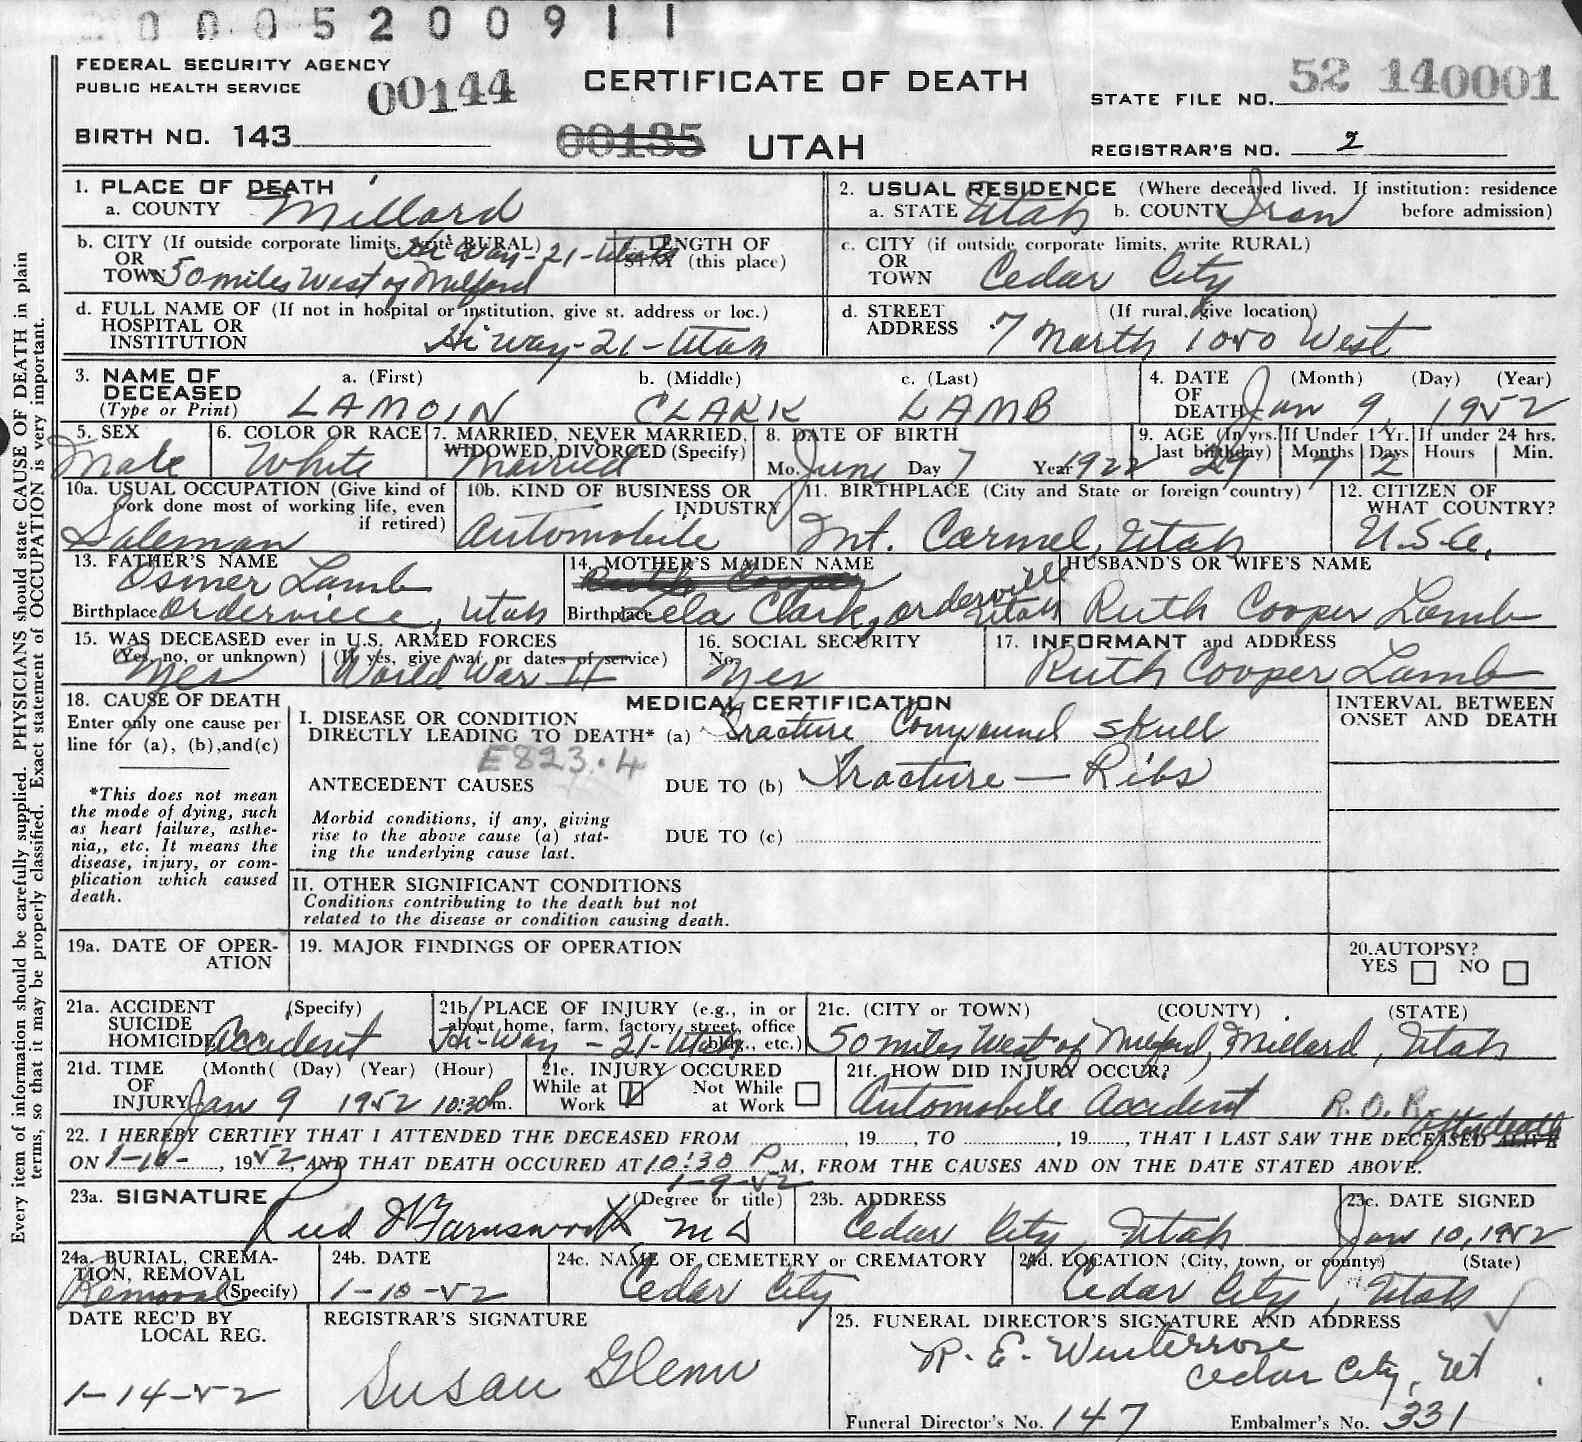 0005200911
FEDERAL SECURITY AGENCY
PUBLIC HEALTH SERVICE
00144
CERTIFICATE OF DEATH
STATE FILE NO. 52 140001
BIRTH NO. 143
00135
UTAH
REGISTRAR'S NO. 2
1. PLACE OF DEATH
a. COUNTY Millard
2. USUAL RESIDENCE (Where deceased lived. If institution: residence before admission)
a. STATE Utah b. COUNTY Iron
b. CITY (If outside corporate limits, write RURAL) OR TOWN Hi Way-21-Utah
50 miles West of Milford
LENGTH OF STAY (this place)
c. CITY (if outside corporate limits, write RURAL) OR TOWN Cedar City
d. FULL NAME OF (If not in hospital or institution, give st. address or loc.)
HOSPITAL OR INSTITUTION Hi way-21-Utah
d. STREET ADDRESS (If rural, give location)
7 North 1050 West
3. NAME OF DECEASED (Type or Print)
a. (First) b. (Middle) c. (Last)
LAMOIN CLARK LAMB
4. DATE OF DEATH (Month) (Day) (Year)
Jan 9, 1952
5. SEX
Male
6. COLOR OR RACE
White
7. MARRIED, NEVER MARRIED, WIDOWED, DIVORCED (Specify)
Married
8. DATE OF BIRTH
Mo. June Day 7 Year 1922
9. AGE (In yrs. last birthday) 29
If Under 1 Yr. Months 7 Days 2
If under 24 hrs. Hours Min.
10a. USUAL OCCUPATION (Give kind of work done most of working life, even if retired)
Saleman
10b. KIND OF BUSINESS OR INDUSTRY
Automobile
11. BIRTHPLACE (City and State or foreign country)
Mt. Carmel, Utah
12. CITIZEN OF WHAT COUNTRY?
U.S.A.
13. FATHER'S NAME
Osmer Lamb
Birthplace Orderville, Utah
14. MOTHER'S MAIDEN NAME
Ruth Cooper
Birthplace Lela Clark, Orderville Utah
HUSBAND'S OR WIFE'S NAME
Ruth Cooper Lamb
15. WAS DECEASED ever in U.S. ARMED FORCES
(Yes, no, or unknown) (If yes, give war or dates of service)
Yes World War II
16. SOCIAL SECURITY No.
Yes
17. INFORMANT and ADDRESS
Ruth Cooper Lamb
18. CAUSE OF DEATH
Enter only one cause per line for (a), (b), and (c)
*This does not mean the mode of dying, such as heart failure, asthenia,, etc. It means the disease, injury, or complication which caused death.
MEDICAL CERTIFICATION
INTERVAL BETWEEN ONSET AND DEATH
I. DISEASE OR CONDITION DIRECTLY LEADING TO DEATH* (a) Fracture Compound skull
E823.4
ANTECEDENT CAUSES DUE TO (b) Fracture — Ribs
Morbid conditions, if any, giving rise to the above cause (a) stating the underlying cause last.
DUE TO (c)
II. OTHER SIGNIFICANT CONDITIONS
Conditions contributing to the death but not related to the disease or condition causing death.
19a. DATE OF OPERATION
19. MAJOR FINDINGS OF OPERATION
20. AUTOPSY?
YES NO
21a. ACCIDENT SUICIDE HOMICIDE (Specify)
Accident
21b. PLACE OF INJURY (e.g., in or about home, farm, factory, street, office bldg., etc.)
Hi-Way - 21-Utah
21c. (CITY or TOWN) (COUNTY) (STATE)
50 miles West of Milford, Millard, Utah
21d. TIME OF INJURY (Month( (Day) (Year) (Hour)
Jan 9 1952 10:30 P m.
21e. INJURY OCCURED
While at Work Not While at Work
21f. HOW DID INJURY OCCUR?
Automobile Accident
after death
22. I HEREBY CERTIFY THAT I ATTENDED THE DECEASED FROM , 19 , TO , 19 , THAT I LAST SAW THE DECEASED ALIVE
ON 1-10- , 1952, AND THAT DEATH OCCURED AT 10:30 P M, FROM THE CAUSES AND ON THE DATE STATED ABOVE.
1-9-52
23a. SIGNATURE (Degree or title)
Reed W Farnsworth MD
23b. ADDRESS
Cedar City, Utah
23c. DATE SIGNED
Jan 10, 1952
24a. BURIAL, CREMATION, REMOVAL (Specify)
Removal
24b. DATE
1-10-52
24c. NAME OF CEMETERY or CREMATORY
Cedar City
24d. LOCATION (City, town, or county) (State)
Cedar City, Utah
DATE REC'D BY LOCAL REG.
1-14-52
REGISTRAR'S SIGNATURE
Susan Glenn
25. FUNERAL DIRECTOR'S SIGNATURE AND ADDRESS
R. E. Winterrose
Cedar City, Ut
Funeral Director's No. 147 Embalmer's No. 331
Every item of information should be carefully supplied. PHYSICIANS should state CAUSE OF DEATH in plain
terms, so that it may be properly classified. Exact statement of OCCUPATION is very important.